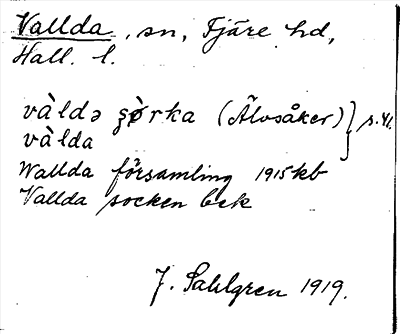 Vallda, sn, Fjäre hd,
Hall. l.
và̀ldə şò̀rka (Älvsåker) } s. 41.
và̀lda
Wallda församling 1915 kb
Vallda socken bek
J. Sahlgren 1919.